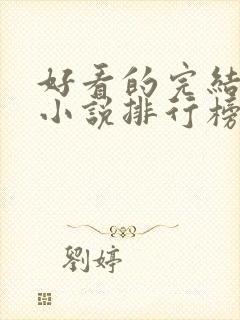 好看的完結
小說排行榜
劉婷